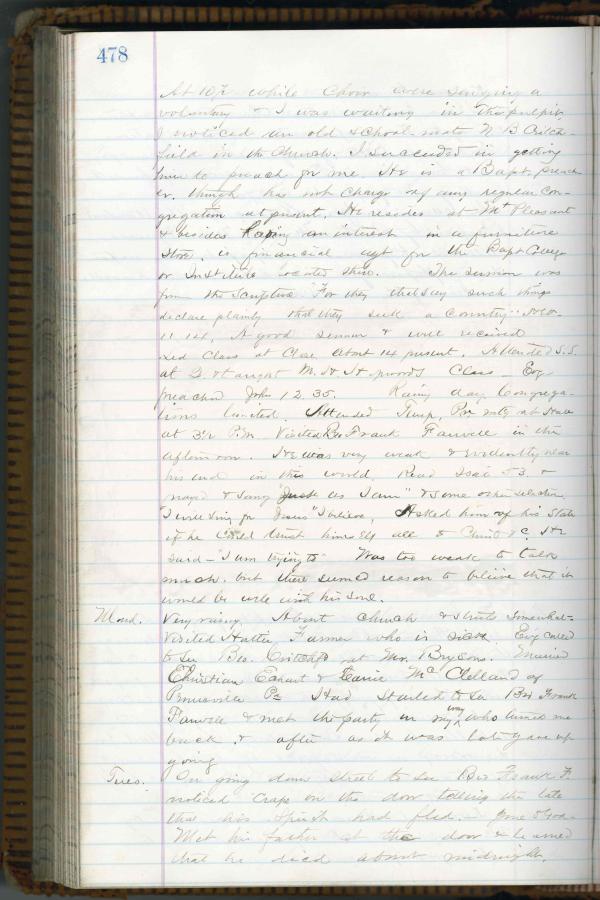 478
At 10½ while Choir were singing a
voluntary & I was waiting in the pulpit
I noticed an old school mate N B Critch-
field in the Church. I succeeded in getting
him to preach for me. He is a Bapt. preach
er. though has not charge of any regular con-
gregation at present. He resides at Mt Pleasant
& besides having an interest in a furniture
Store, is financial agt for the Bapt College
or Institute located there. The sermon was
from the Scripture "For they that say such things
declare plainly that they seek a country"
11 14. A good sermon & well received
Led Class at Close about 14 present. Attended S.S.
at 2 & taught M. H. Class – Eve
preached John 12.35. Rainy day Congrega-
tions limited. Attended Temp. mtg at Hall
at 3½ P.M. Visited Bro Frank Farwell in the
afternoon. He was very weak & evidently near
his end in this world. Read Isai 53. &
prayed & sang "Just as I am" & some other selection
"I will sing for Jesus" I believe. Asked him of his State
if he could trust himself all to Christ &c. He
said – "I am trying to" Was too weak to talk
much. but there seemed reason to believe that it
would be well with his soul.
Mond. Very rainy. About church & streets somewhat–
Visited Hattie Farmer who is sick. Eve called
to see Bro. Critchfd at Mr. Brysons. Married
Christian Echart & Carrie McClelland of
Pa Had started to see Bro Frank
Farwell & met the party on my way who turned me
back & after as it was late gave up
going
Tues. On going down street to see Bro Frank F.
noticed crape on the door telling the tale
that his spirit had fled.
Met his father at the door & learned
that he died about midnight.